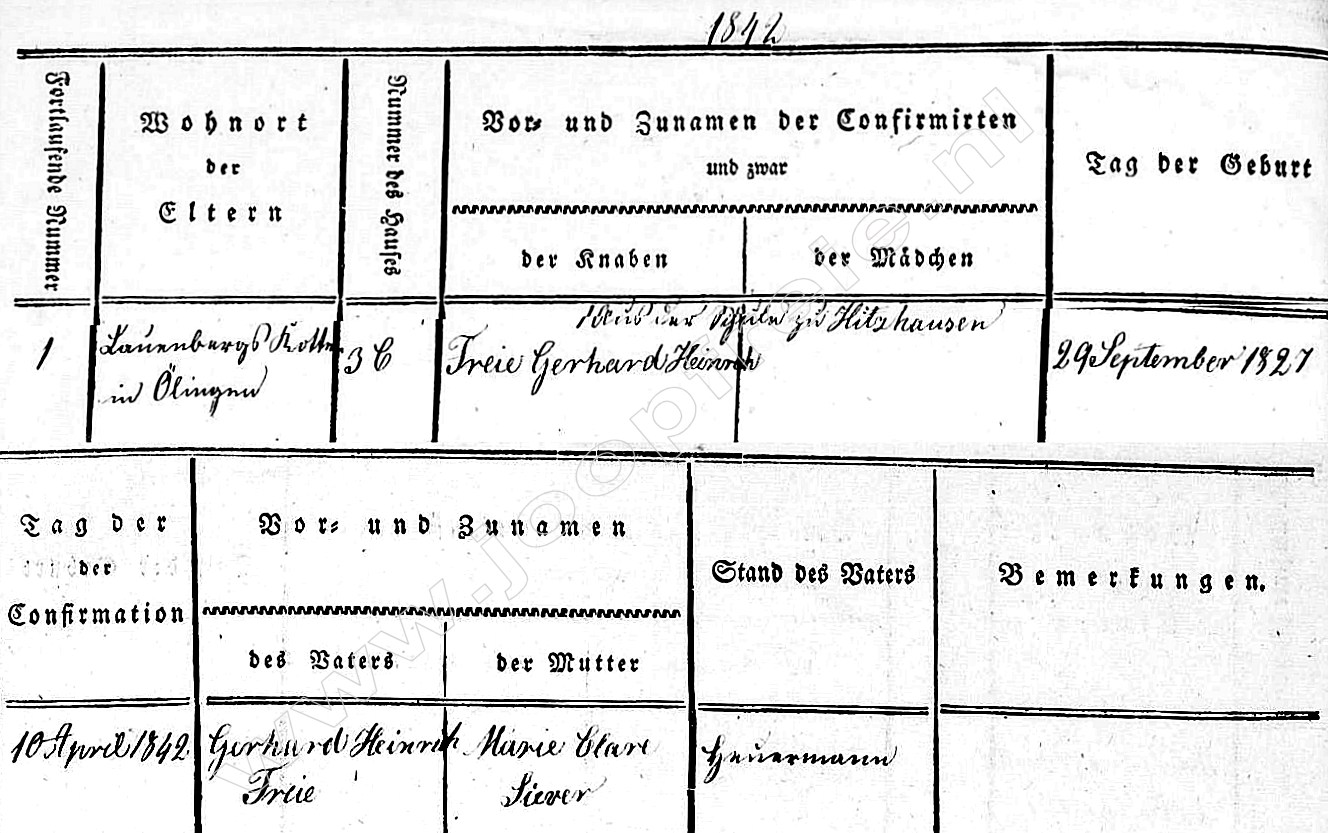 1842
Fortlaufende Nummer
Wohnort
der
Eltern
Nummer des Hauses
Vor- und Zunamen der Confirmirten
und zwar
der Knaben
der Mädchen
Tag der Geburt
Aus der Schule zu Hitzhausen
1
Lauenbergs Kotten
in Ölingen
3 C
Freie Gerhard Heinrich
29 September 1827
Tag der
der
Confirmation
Vor- und Zunamen
des Vaters
der Mutter
Stand des Vaters
Bemerkungen.
10 April 1842
Gerhard Heinrich
Freie
Marie Clare
Siever
Heuermann
www.joopfreie.nl